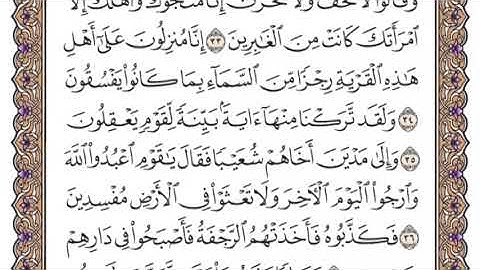 وَقَالُوا۟ لَا تَخَفْ وَلَا تَحْزَنْ إِنَّا مُنَجُّوكَ وَأَهْلَكَ إِلَّا
ٱمْرَأَتَكَ كَانَتْ مِنَ ٱلْغَٰبِرِينَ ٣٣ إِنَّا مُنزِلُونَ عَلَىٰٓ أَهْلِ
هَٰذِهِ ٱلْقَرْيَةِ رِجْزًا مِّنَ ٱلسَّمَآءِ بِمَا كَانُوا۟ يَفْسُقُونَ
٣٤ وَلَقَد تَّرَكْنَا مِنْهَآ ءَايَةًۢ بَيِّنَةً لِّقَوْمٍ يَعْقِلُونَ
٣٥ وَإِلَىٰ مَدْيَنَ أَخَاهُمْ شُعَيْبًا فَقَالَ يَٰقَوْمِ ٱعْبُدُوا۟ ٱللَّهَ
وَٱرْجُوا۟ ٱلْيَوْمَ ٱلْءَاخِرَ وَلَا تَعْثَوْا۟ فِى ٱلْأَرْضِ مُفْسِدِينَ
٣٦ فَكَذَّبُوهُ فَأَخَذَتْهُمُ ٱلرَّجْفَةُ فَأَصْبَحُوا۟ فِى دَارِهِمْ